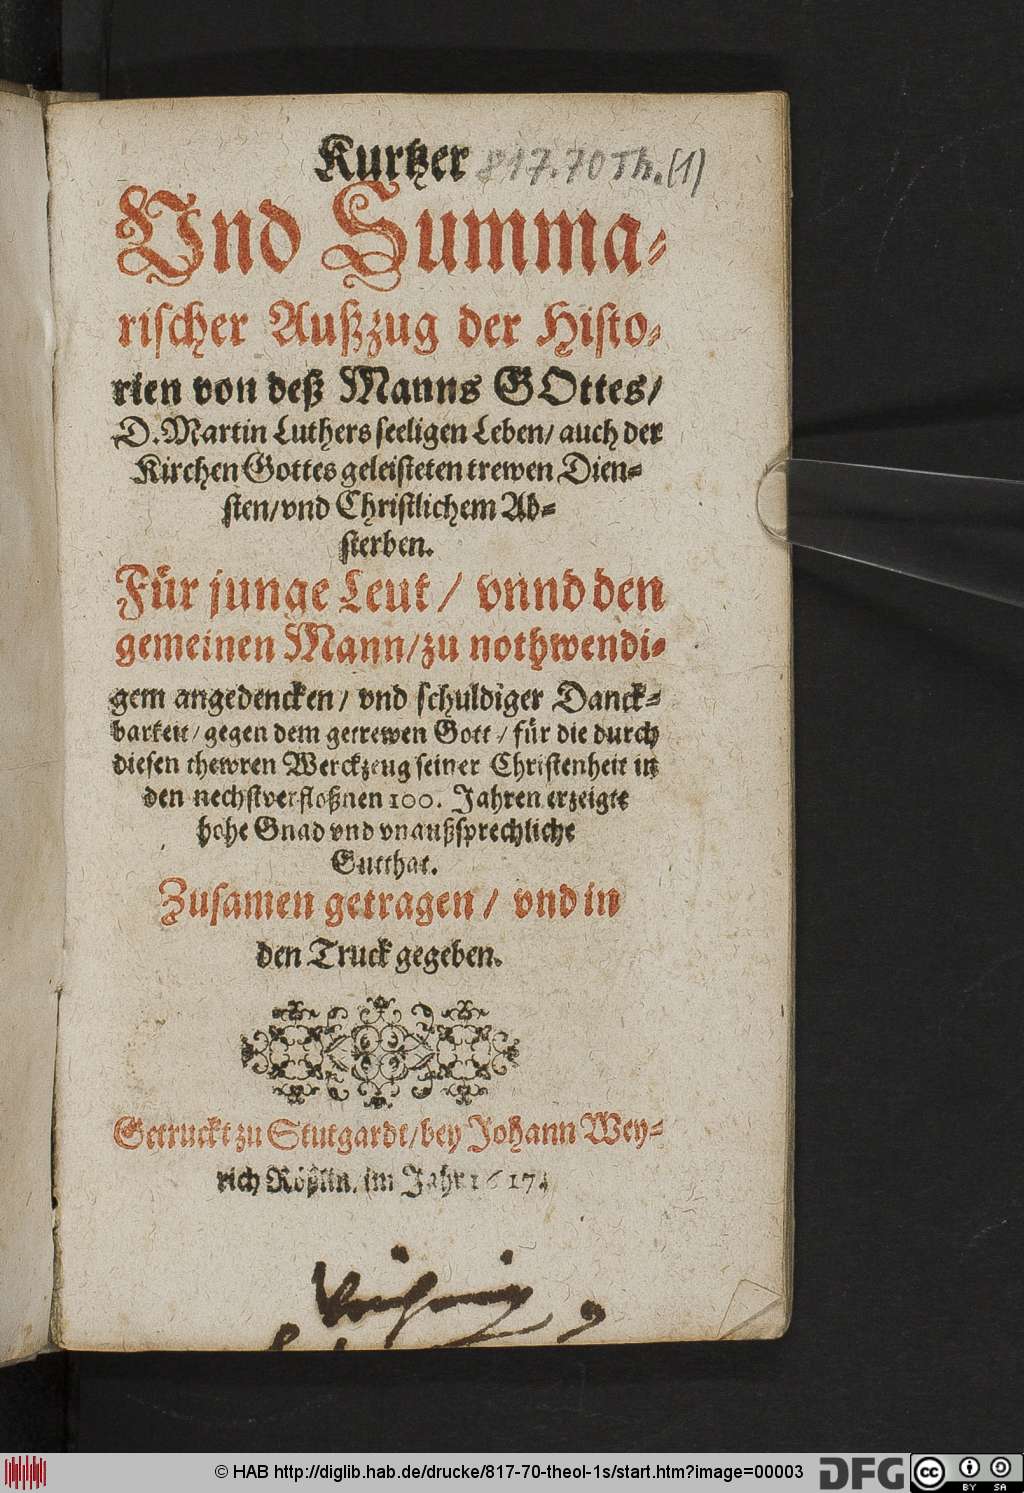 Kurtzer 817.70 Th.(1)
Vnd Summa-
rischer Außzug der Histo-
rien von deß Manns GOttes/
D. Martin Luthers seeligen Leben/ auch der
Kirchen Gottes geleisteten trewen Dien-
sten/ vnd Christlichem Ab-
sterben.
Für junge Leut/ vnnd den
gemeinen Mann/ zu nothwendi-
gem angedencken/ vnd schuldiger Danck-
barkeit/ gegen dem getrewen Gott/ für die durch
diesen thewren Werckzeug seiner Christenheit in
den nechstverfloßnen 100. Jahren erzeigte
hohe Gnad vnd vnaußsprechliche
Gutthat.
Zusamen getragen/ vnd in
den Truck gegeben.
Getruckt zu Stutgardt/ bey Johann Wey-
rich Rößlin, im Jahr 1617.
© HAB http://diglib.hab.de/drucke/817-70-theol-1s/start.htm?image=00003
DFG
cc
BY SA